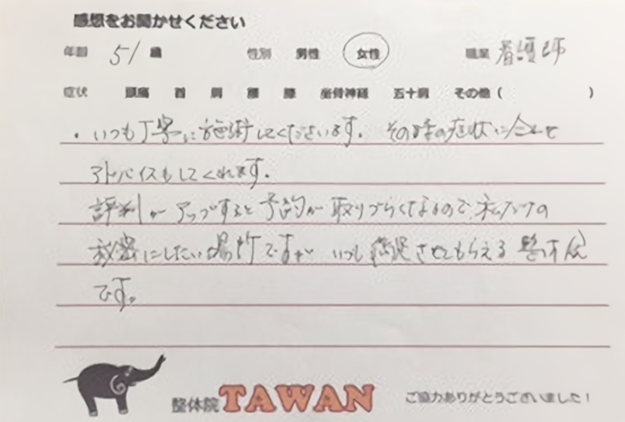 感想をお聞かせください
年齢 51 歳 性別 男性 女性 職業 看護師
症状 頭痛 首 肩 腰 膝 坐骨神経 五十肩 その他( )
・いつも丁寧に施術してくださいます。その時の症状に合わせ
アドバイスもしてくれます。
評判がアップすると予約が取りづらくなるので、私だけの
秘密にしたい場所ですが いつも させてもらえる整体院
です。
整体院 TAWAN ご協力ありがとうございました!